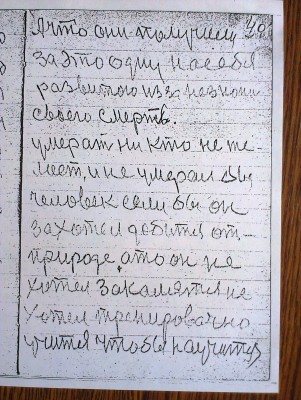 А что они получают 40
за это одну на себя
развитого из за незнони
своего смерть.
умерат ни кто не же-
лает, и не умерал бы
человек если бы он
захотел добится от
природе, а то он не
хотел закалятся не
хотел тренировачно
учится чтобы научится